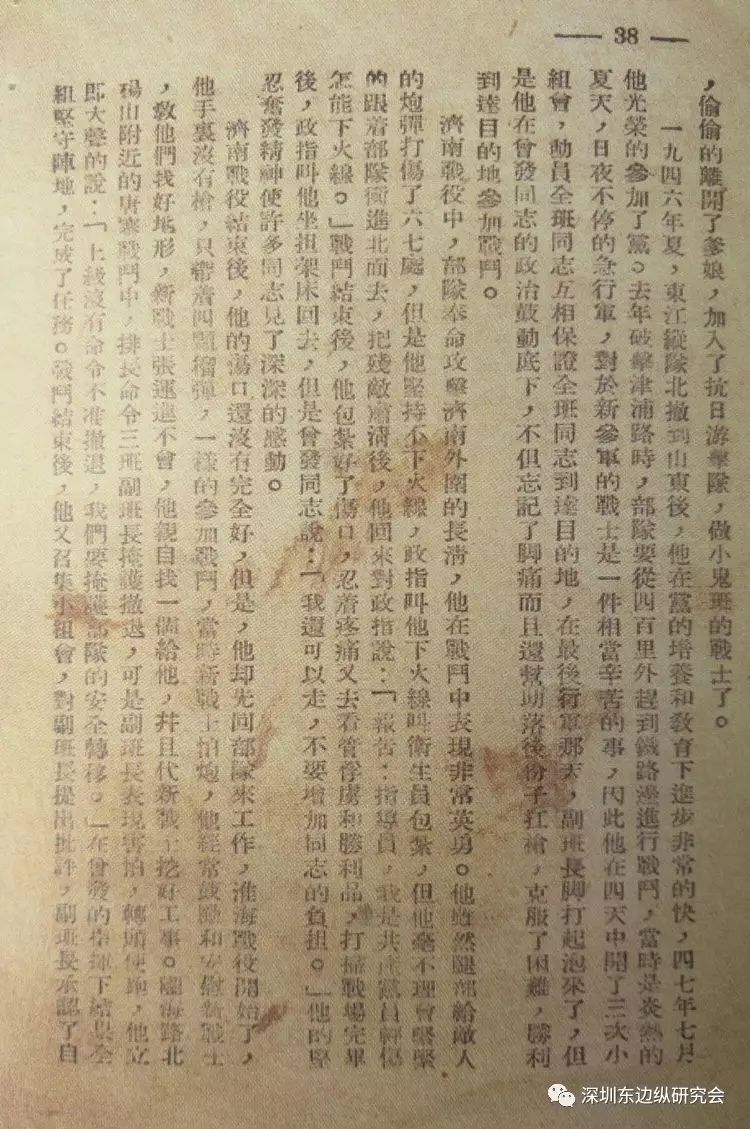 — 38 —
，偷偷的離開了爹娘，加入了抗日游擊隊，做小鬼班的戰士了。
一九四六年夏，東江縱隊北撤到山東後，他在黨的培養和敎育下進步非常的快，四七年七月
他光榮的參加了黨。去年破擊津浦路時，部隊要從四百里外趕到鐵路邊進行戰鬥，當時是炎熱的
夏天，日夜不停的急行軍，對於新參軍的戰士是一件相當辛苦的事，因此他在四天中開了三次小
組會，動員全班同志互相保證全班同志到達目的地，在最後行軍那天，副班長脚打起泡來了，但
是他在曾發同志的政治鼓動底下，不但忘記了脚痛而且還幫助落後份子扛槍，克服了困難，勝利
到達目的地參加戰鬥。
濟南戰役中，部隊奉命攻擊濟南外圍的長淸，他在戰鬥中表現非常英勇。他雖然腿部給敵人
的炮彈打傷了六七處，但是他堅持不下火線，政指叫他下火線叫衛生員包紮，但他毫不理會緊緊
的跟着部隊衝進北面去，把殘敵肅淸後，他回來對政指說：「報告：指導員，我是共產黨員輕傷
怎能下火線。」戰鬥結束後，他包紮好了傷口，忍着疼痛又去看管俘虜和勝利品，打掃戰場完畢
後，政指叫他坐担架床回去，但是曾發同志說：「我還可以走，不要增加同志的負担。」他的堅
忍奮發精神使許多同志見了深深的感動。
濟南戰役結束後，他的傷口還沒有完全好，但是，他却先回部隊來工作，淮海戰役開始了，
他手裏沒有槍，只帶着四顆榴彈，一樣的參加戰鬥，當時新戰士怕炮，他經常鼓勵和安慰新戰士
，敎他們找好地形，新戰士張運進不會，他親自找一個給他，幷且代新戰士挖好工事。隴海路北
碭山附近的唐寨戰鬥中，排長命令三班副班長掩護撤退，可是副班長表現害怕，轉頭便跑，他立
即大聲的說：「上級沒有命令不准撤退，我們要掩護部隊的安全轉移。」在曾發的指揮下結果全
組堅守陣地，完成了任務。戰鬥結束後，他又召集小組會，對副班長提出批評，副班長承認了自
深圳东边纵研究会